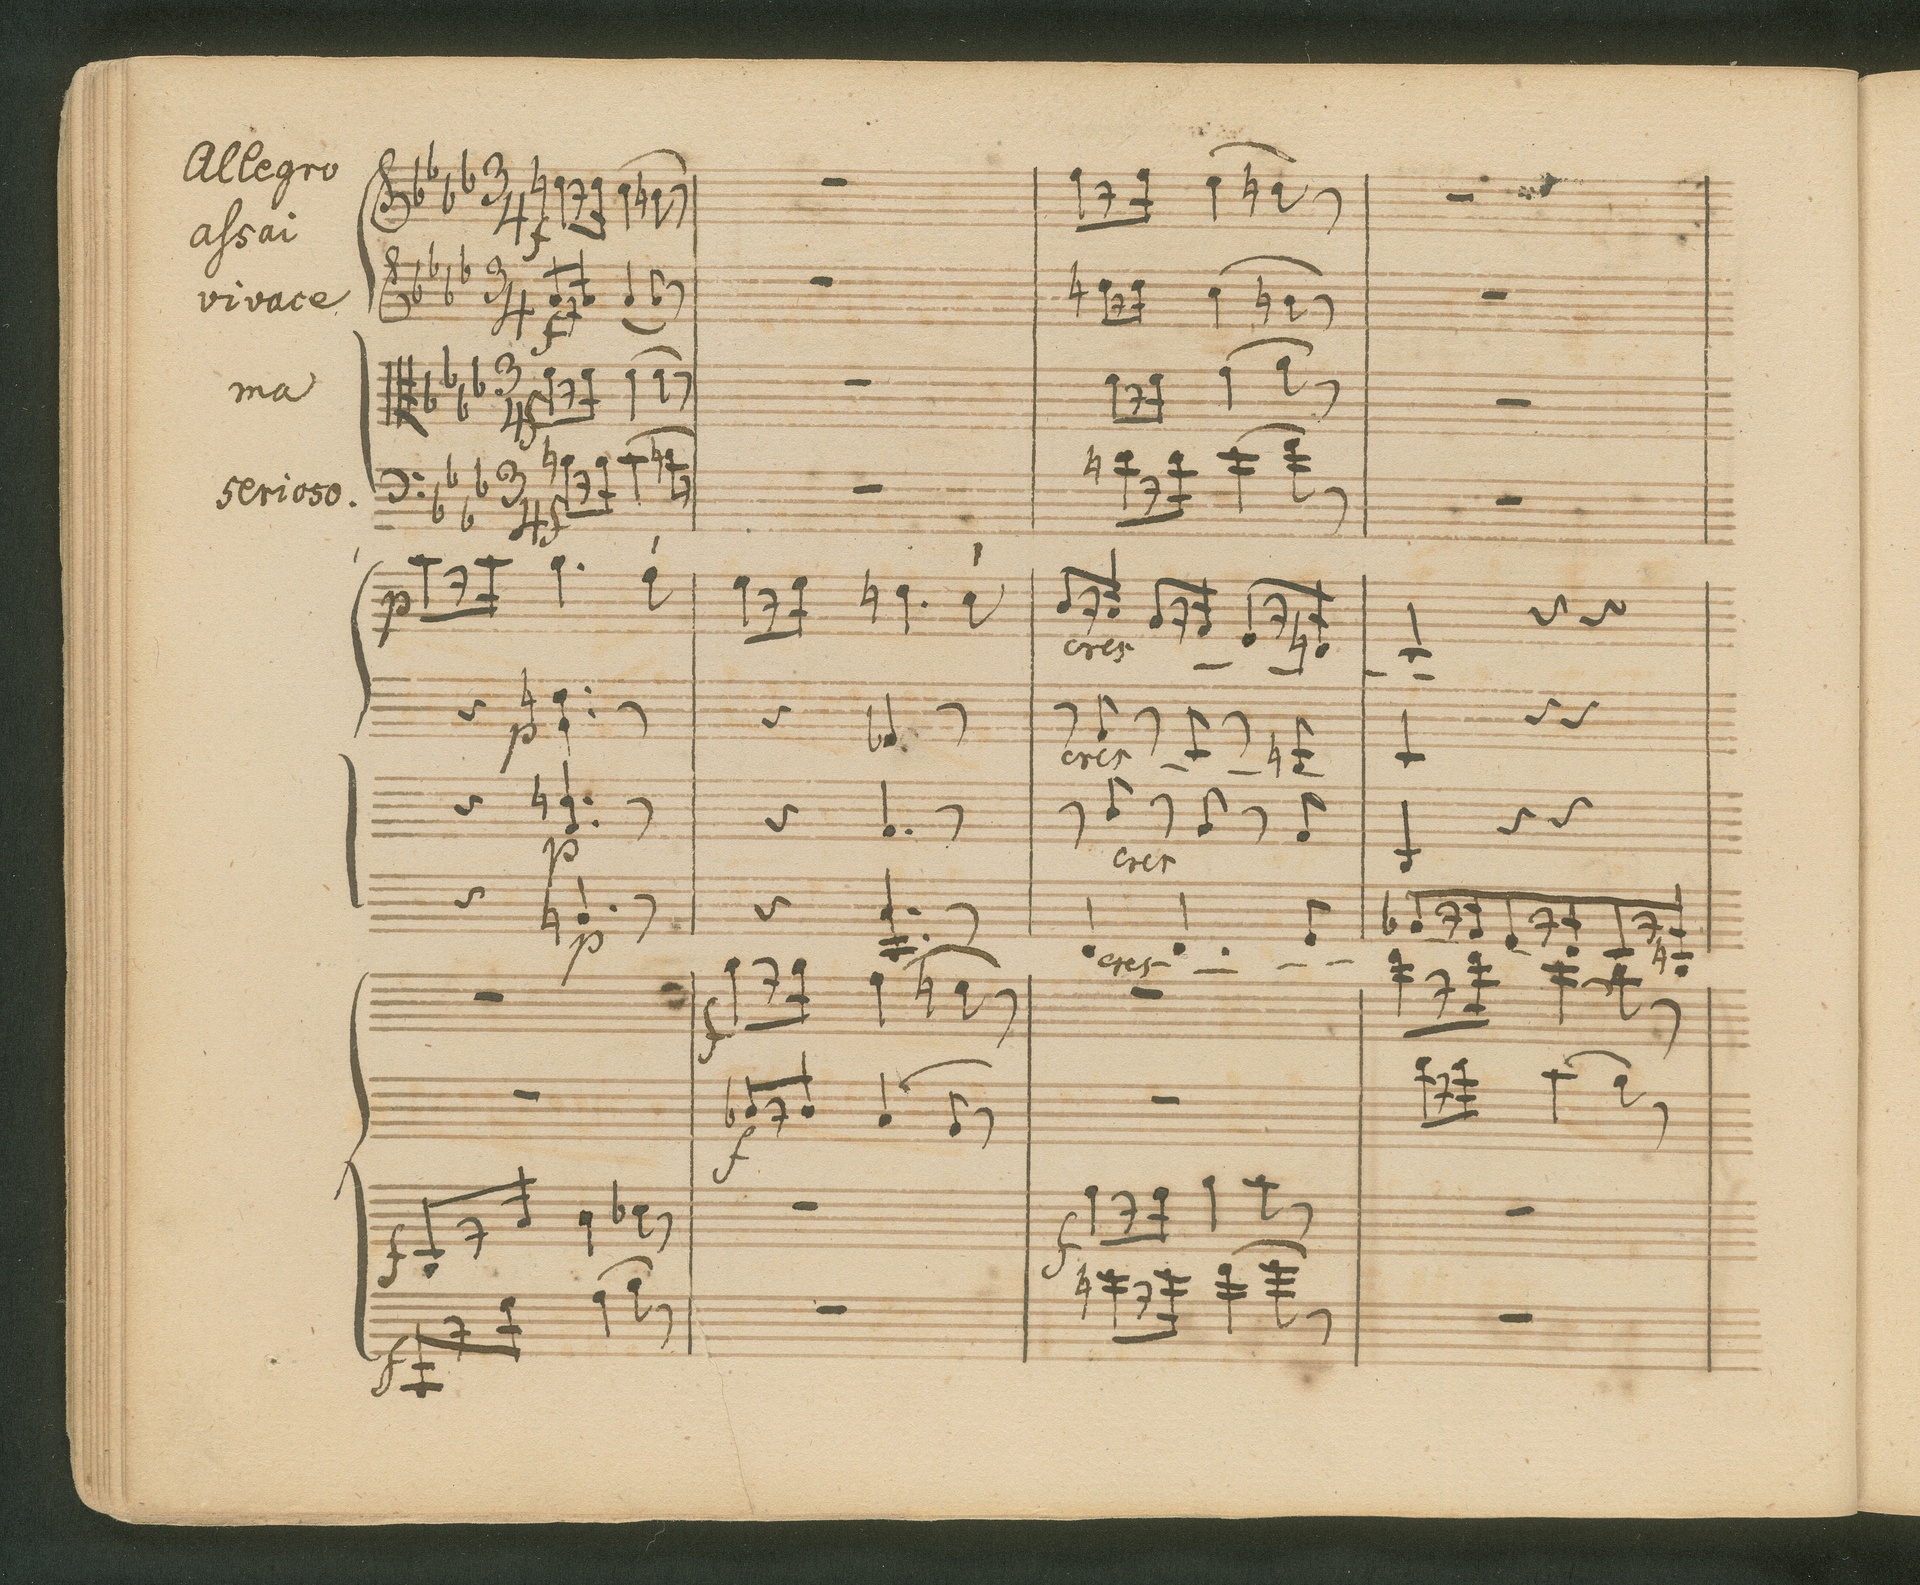 Allegro
aſsai
vivace
ma
serioso.
3 4
f
3 4
f
3 4
f
3 4
f
p
cres
p
cres
p
cres
p
cres
f
f
f
f
f